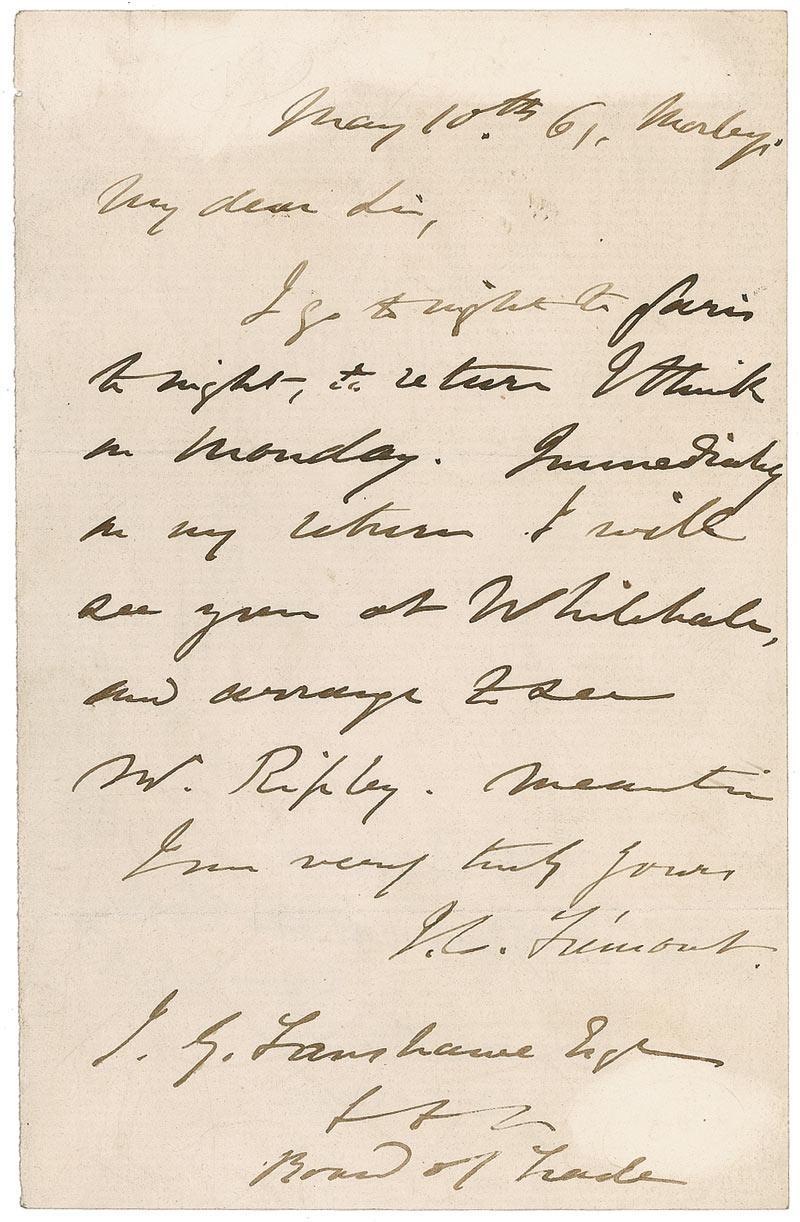 May 10.th 61. Morley's
My dear Sir,
I go to night to Paris
to night, to return I think
on Monday. Immediately
on my return I will
see you at Whitehall,
and arrange to see
Mr. Ripley. Meantime
I am very truly yours
J.C. Frémont.
J. G. Fanshawe Esqr
&c &c &c
Board of Trade